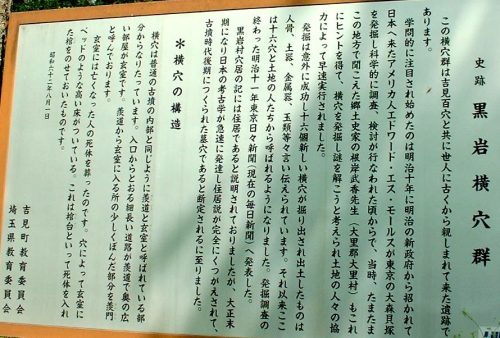 史跡 黒岩横穴群
この横穴群は吉見百穴と共に世人に古くから親しまれて来た遺跡で
あります。
学問的に注目され始めたのは明治十年に明治の新政府から招かれて
日本へ来たアメリカ人エドワード・エス・モールスが東京の大森貝塚
を発掘し科学的に調査、検討が行なわれた頃からで、当時、たまたま
この地方で聞こえた郷土史家の根岸武香先生(大里郡大里村)もこれ
にヒントを得て、横穴を発掘し謎を解こうと考えられ土地の人々の協
力によって早速実行されました。
発掘は意外に成功し十六個新しい横穴が掘り出され出土したものは
人骨、土器、金属器、玉類等々言い伝えられています。それ以来ここ
は十六穴と土地の人たちから呼ばれるようになりました。発掘調査の
終わった明治十一年東京日々新聞(現在の毎日新聞)へ発表した。
黒岩村穴居の記には住居であると説明されておりましたが、大正末
期になり日本の考古学が急速に発達し住居説が完全にくつがえされて、
古墳時代後期につくられた墓穴であると断定されるに至りました。
*横穴の構造
横穴は普通の古墳の内部と同じように羨道と玄室と呼ばれている部
分からなりたっています。入口からとおる細長い道路が羨道で奥の広
い部屋が玄室です。羨道から玄室に入る所の少しくぼんだ部分を羨門
と呼んでおります。
玄室には亡くなった人の死体を葬ったのです。穴によって玄室に
ベッドのような高い床がついている。これは棺台といって死体を入れ
た棺をのせておいたものです。
昭和六十二年八月一日
吉見町教育委員会
埼玉県教育委員会